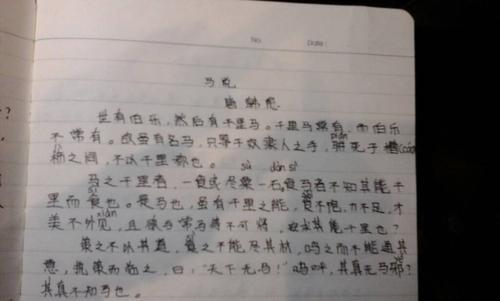 No.
Date:
马说
韩愈
世有伯乐，然后有千里马。千里马常有，而伯乐
不常有。故虽有名马，只辱于奴隶人之手，骈死于槽
枥之间，不以千里称也。
sù dàn sì
马之千里者，一食或尽粟一石食马者不知其能千
sì
里而食也。是马也，虽有千里之能，食不饱，力不足，才
xiàn
美不外见，且欲与常马等不可得，安求其能千里也？
策之不以其道，食之不能尽其材，鸣之而不能通其
意，执策而临之，曰：“天下无马！”呜呼，其真无马邪？
其真不知马也。